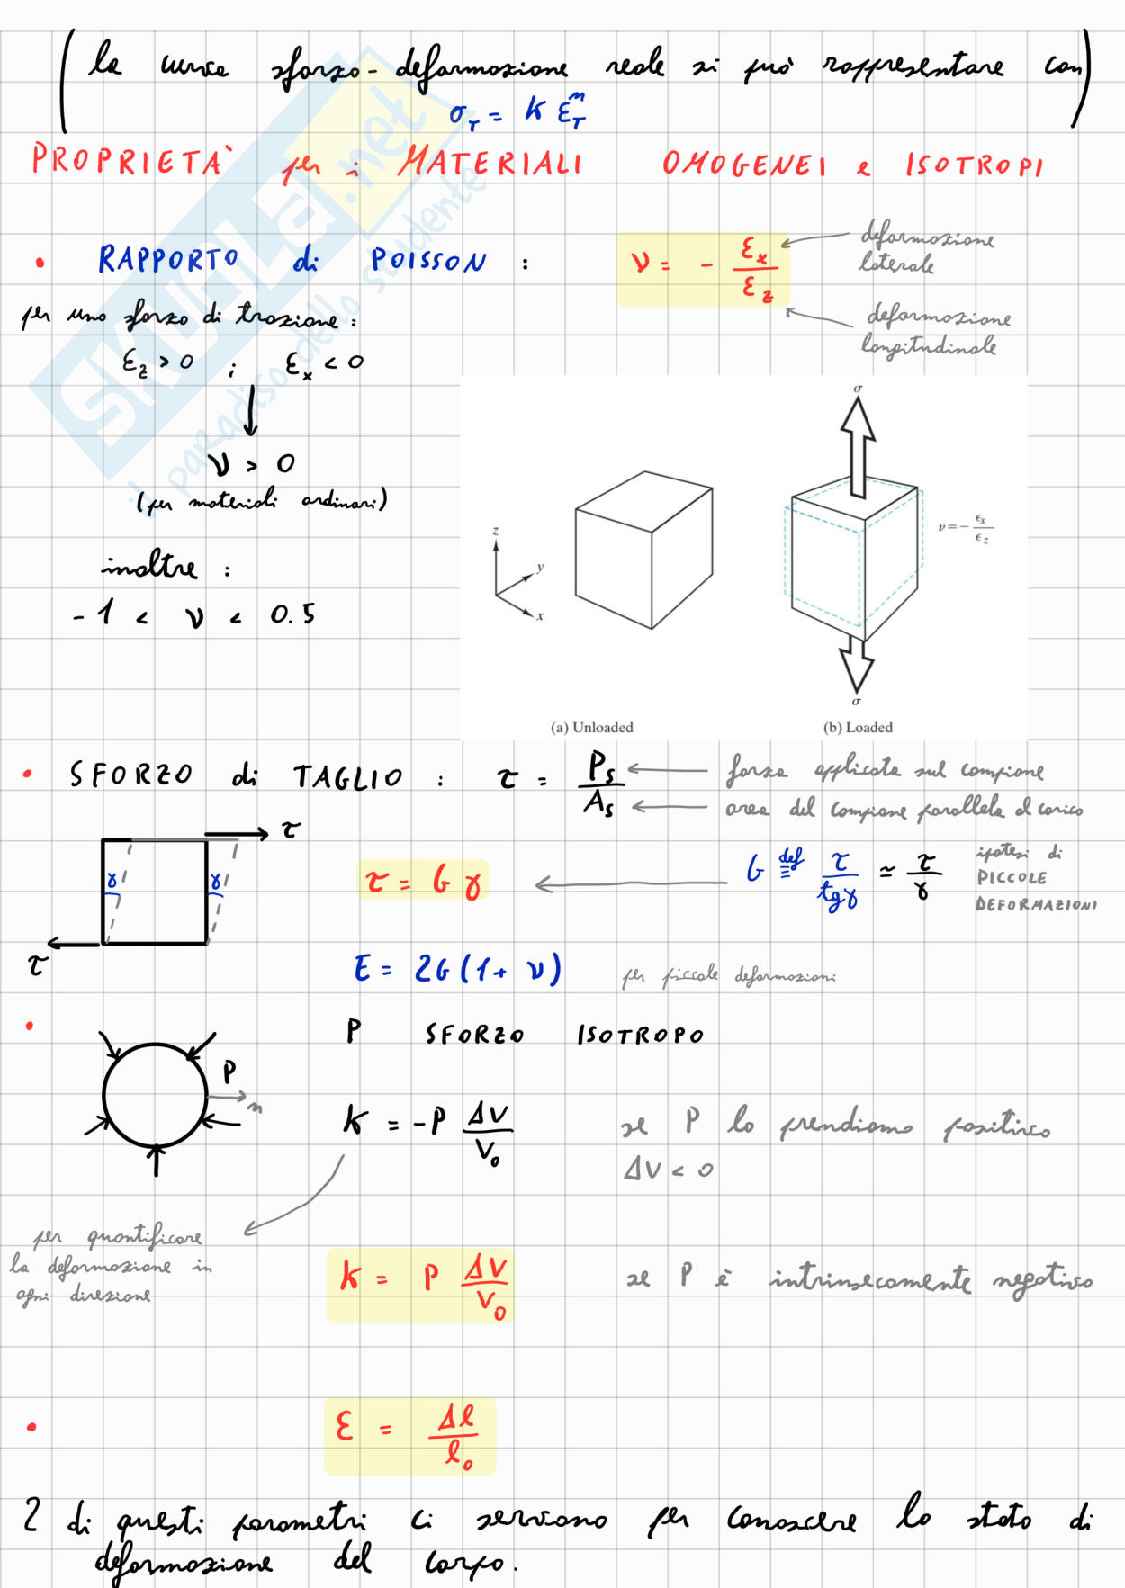 (la curva sforzo-deformazione reale si può rappresentare con)
σ_T = K ε_T^n
PROPRIETÀ per i MATERIALI OMOGENEI e ISOTROPI
• RAPPORTO di POISSON : ν = - ε_x / ε_z
deformazione laterale
deformazione longitudinale
per uno sforzo di trazione :
ε_z > 0 ; ε_x < 0
ν > 0
(per materiali ordinari)
inoltre :
-1 < ν < 0.5
σ
z
y
x
ν = - ε_x / ε_z
σ
(a) Unloaded
(b) Loaded
• SFORZO di TAGLIO : τ = P_s / A_s
forza applicata sul campione
area del campione parallela al carico
τ
γ γ
τ
τ = G γ
G ≝ τ / tgγ ≃ τ / γ
ipotesi di
PICCOLE
DEFORMAZIONI
E = 2G(1+ν) per piccole deformazioni
• P SFORZO ISOTROPO
P
n
K = -P ΔV / V_0
se P lo prendiamo positivo
ΔV < 0
per quantificare
la deformazione in
ogni direzione
K = P ΔV / V_0 se P è intrinsecamente negativo
• ε = Δl / l_0
2 di questi parametri ci servono per conoscere lo stato di
deformazione del corpo.
SKUOLA.net
il paradiso dello studente